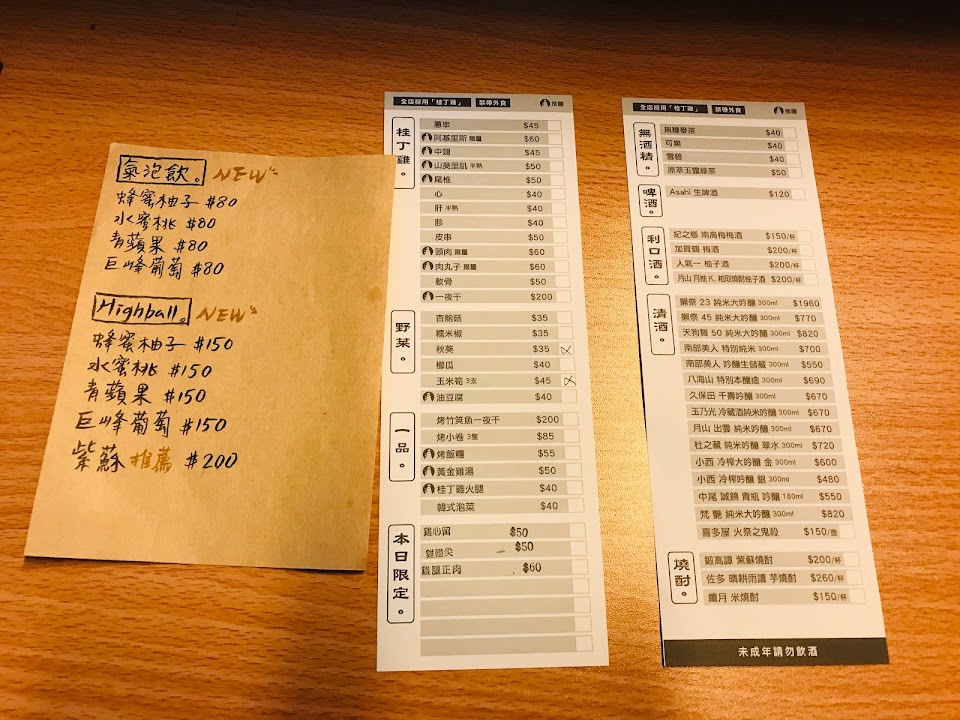 氣泡飲。NEW
蜂蜜柚子 $80
水蜜桃 $80
青蘋果 $80
巨峰葡萄 $80
Highball。NEW
蜂蜜柚子 $150
水蜜桃 $150
青蘋果 $150
巨峰葡萄 $150
紫蘇 推薦 $200
全店採用「桂丁雞」 禁帶外食 推薦
桂丁雞。
蔥串 $45
阿基里斯 限量 $60
中翅 $45
山葵里肌 半熟 $50
尾椎 $50
心 $40
肝 半熟 $40
胗 $40
皮串 $50
頸肉 限量 $60
肉丸子 限量 $60
軟骨 $50
一夜干 $200
野菜。
杏鮑菇 $35
糯米椒 $35
秋葵 $35
櫛瓜 $40
玉米筍 3支 $45
油豆腐 $40
一品。
烤竹筴魚一夜干 $200
烤小卷 3隻 $85
烤飯糰 $55
黃金雞湯 $50
桂丁雞火腿 $40
韓式泡菜 $40
本日限定。
雞心留 $50
雞翅尖 $50
雞腿正肉 $60
全店採用「桂丁雞」 禁帶外食 推薦
無酒精。
無糖麥茶 $40
可樂 $40
雪碧 $40
原萃玉露綠茶 $50
啤酒。
Asahi 生啤酒 $120
利口酒。
紀之鄉 南高梅梅酒 $150/杯
加賀鶴 梅酒 $200/杯
人氣一 柚子酒 $200/杯
月山 月柚K. 粕取燒酎柚子酒 $200/杯
清酒。
獺祭 23 純米大吟釀 300ml $1960
獺祭 45 純米大吟釀 300ml $770
天狗舞 50 純米大吟釀 300ml $820
南部美人 特別純米 300ml $700
南部美人 吟釀生儲藏 300ml $550
八海山 特別本釀造 300ml $690
久保田 千壽吟釀 300ml $670
玉乃光 冷藏酒純米吟釀 300ml $670
月山 出雲 純米吟釀 300ml $670
杜之藏 純米吟釀 翠水 300ml $720
小西 冷榨大吟釀 金 300ml $600
小西 冷榨吟釀 銀 300ml $480
中尾 誠鏡 青瓶 吟釀 180ml $550
梵 艷 純米大吟釀 300ml $820
喜多屋 火祭之鬼殺 $150/壺
燒酎。
鍛高譚 紫蘇燒酎 $200/杯
佐多 晴耕雨讀 芋燒酎 $260/杯
纖月 米燒酎 $150/杯
未成年請勿飲酒